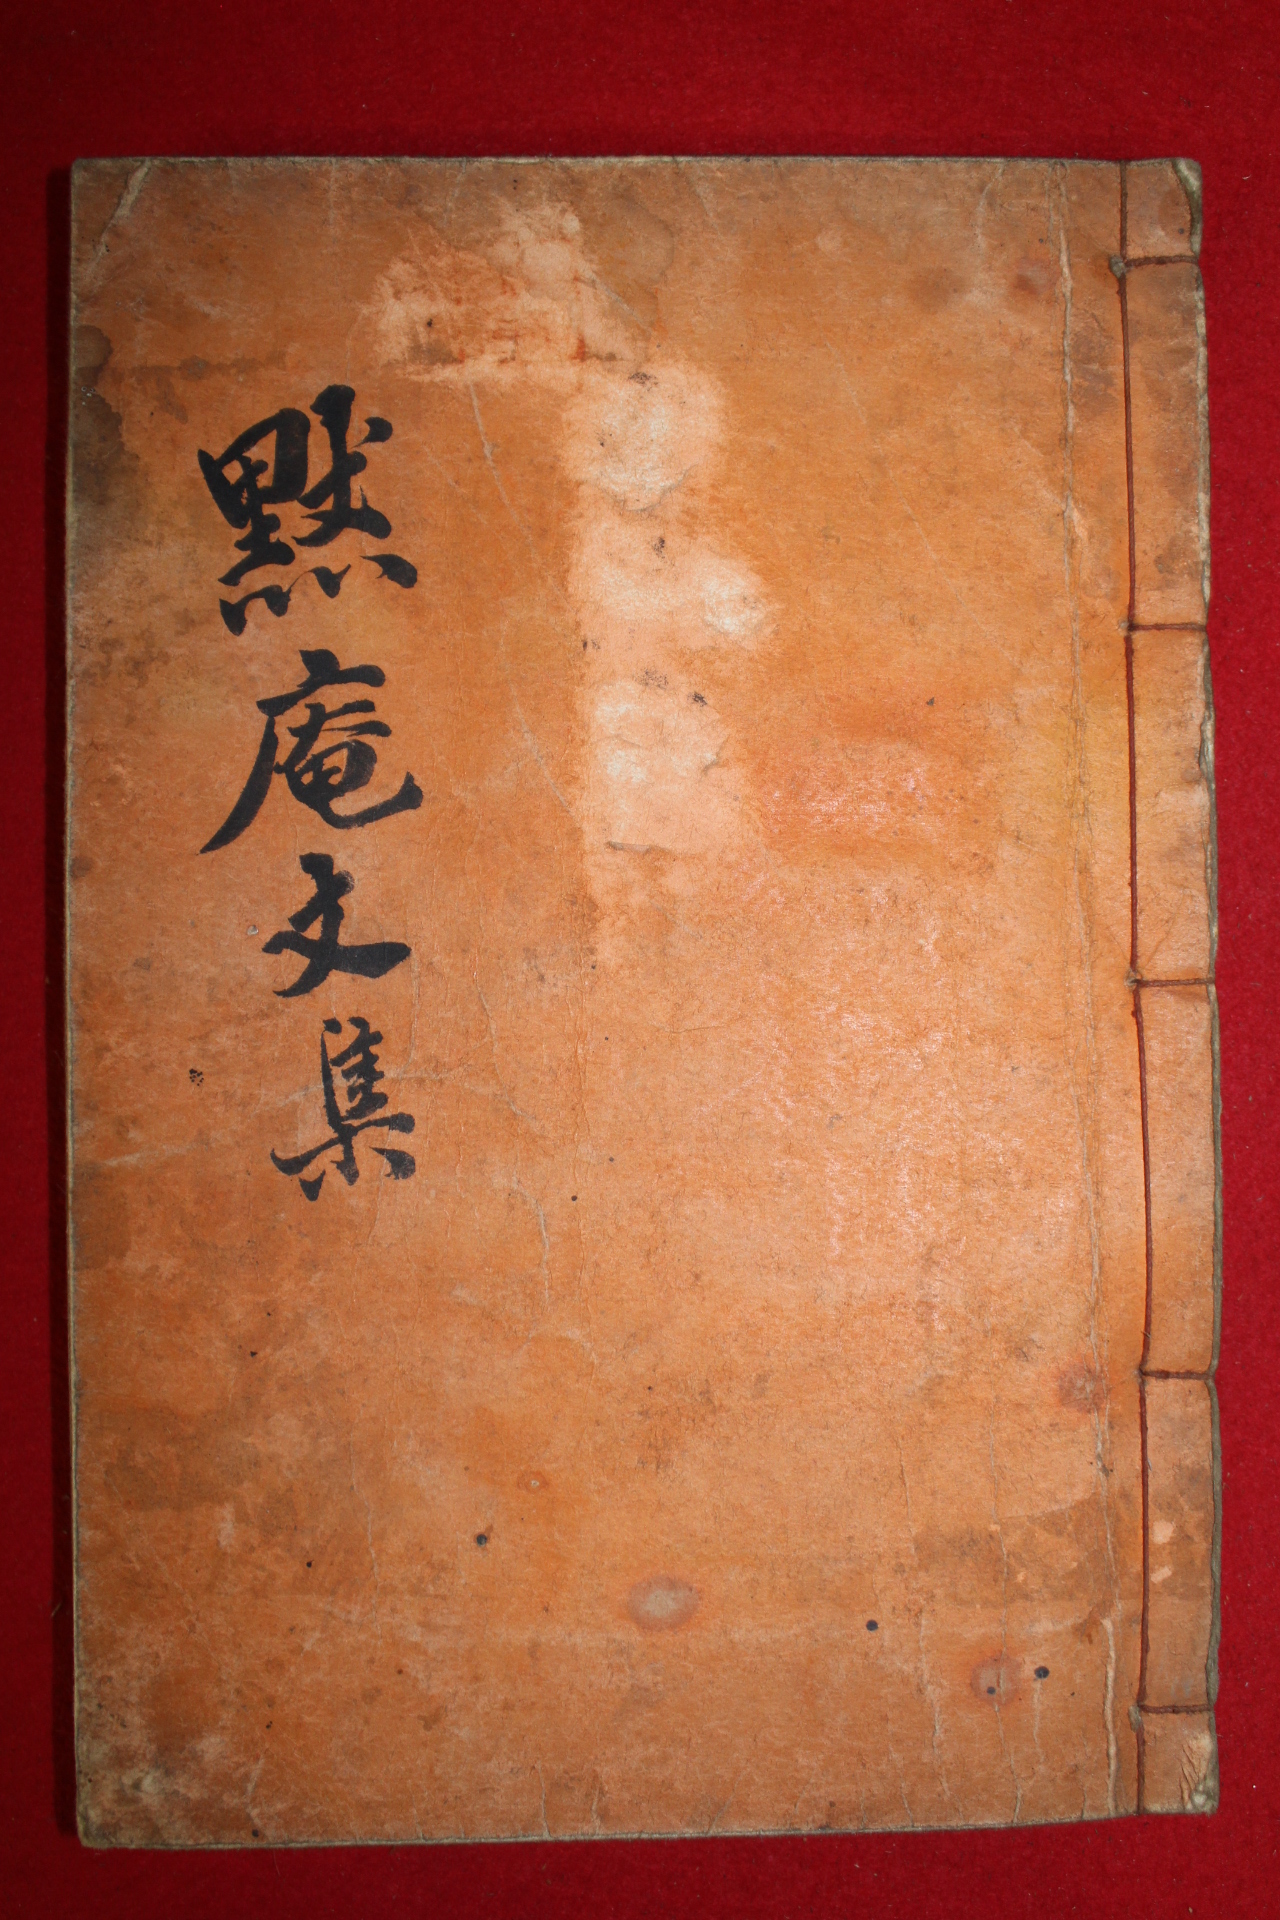 默庵文集